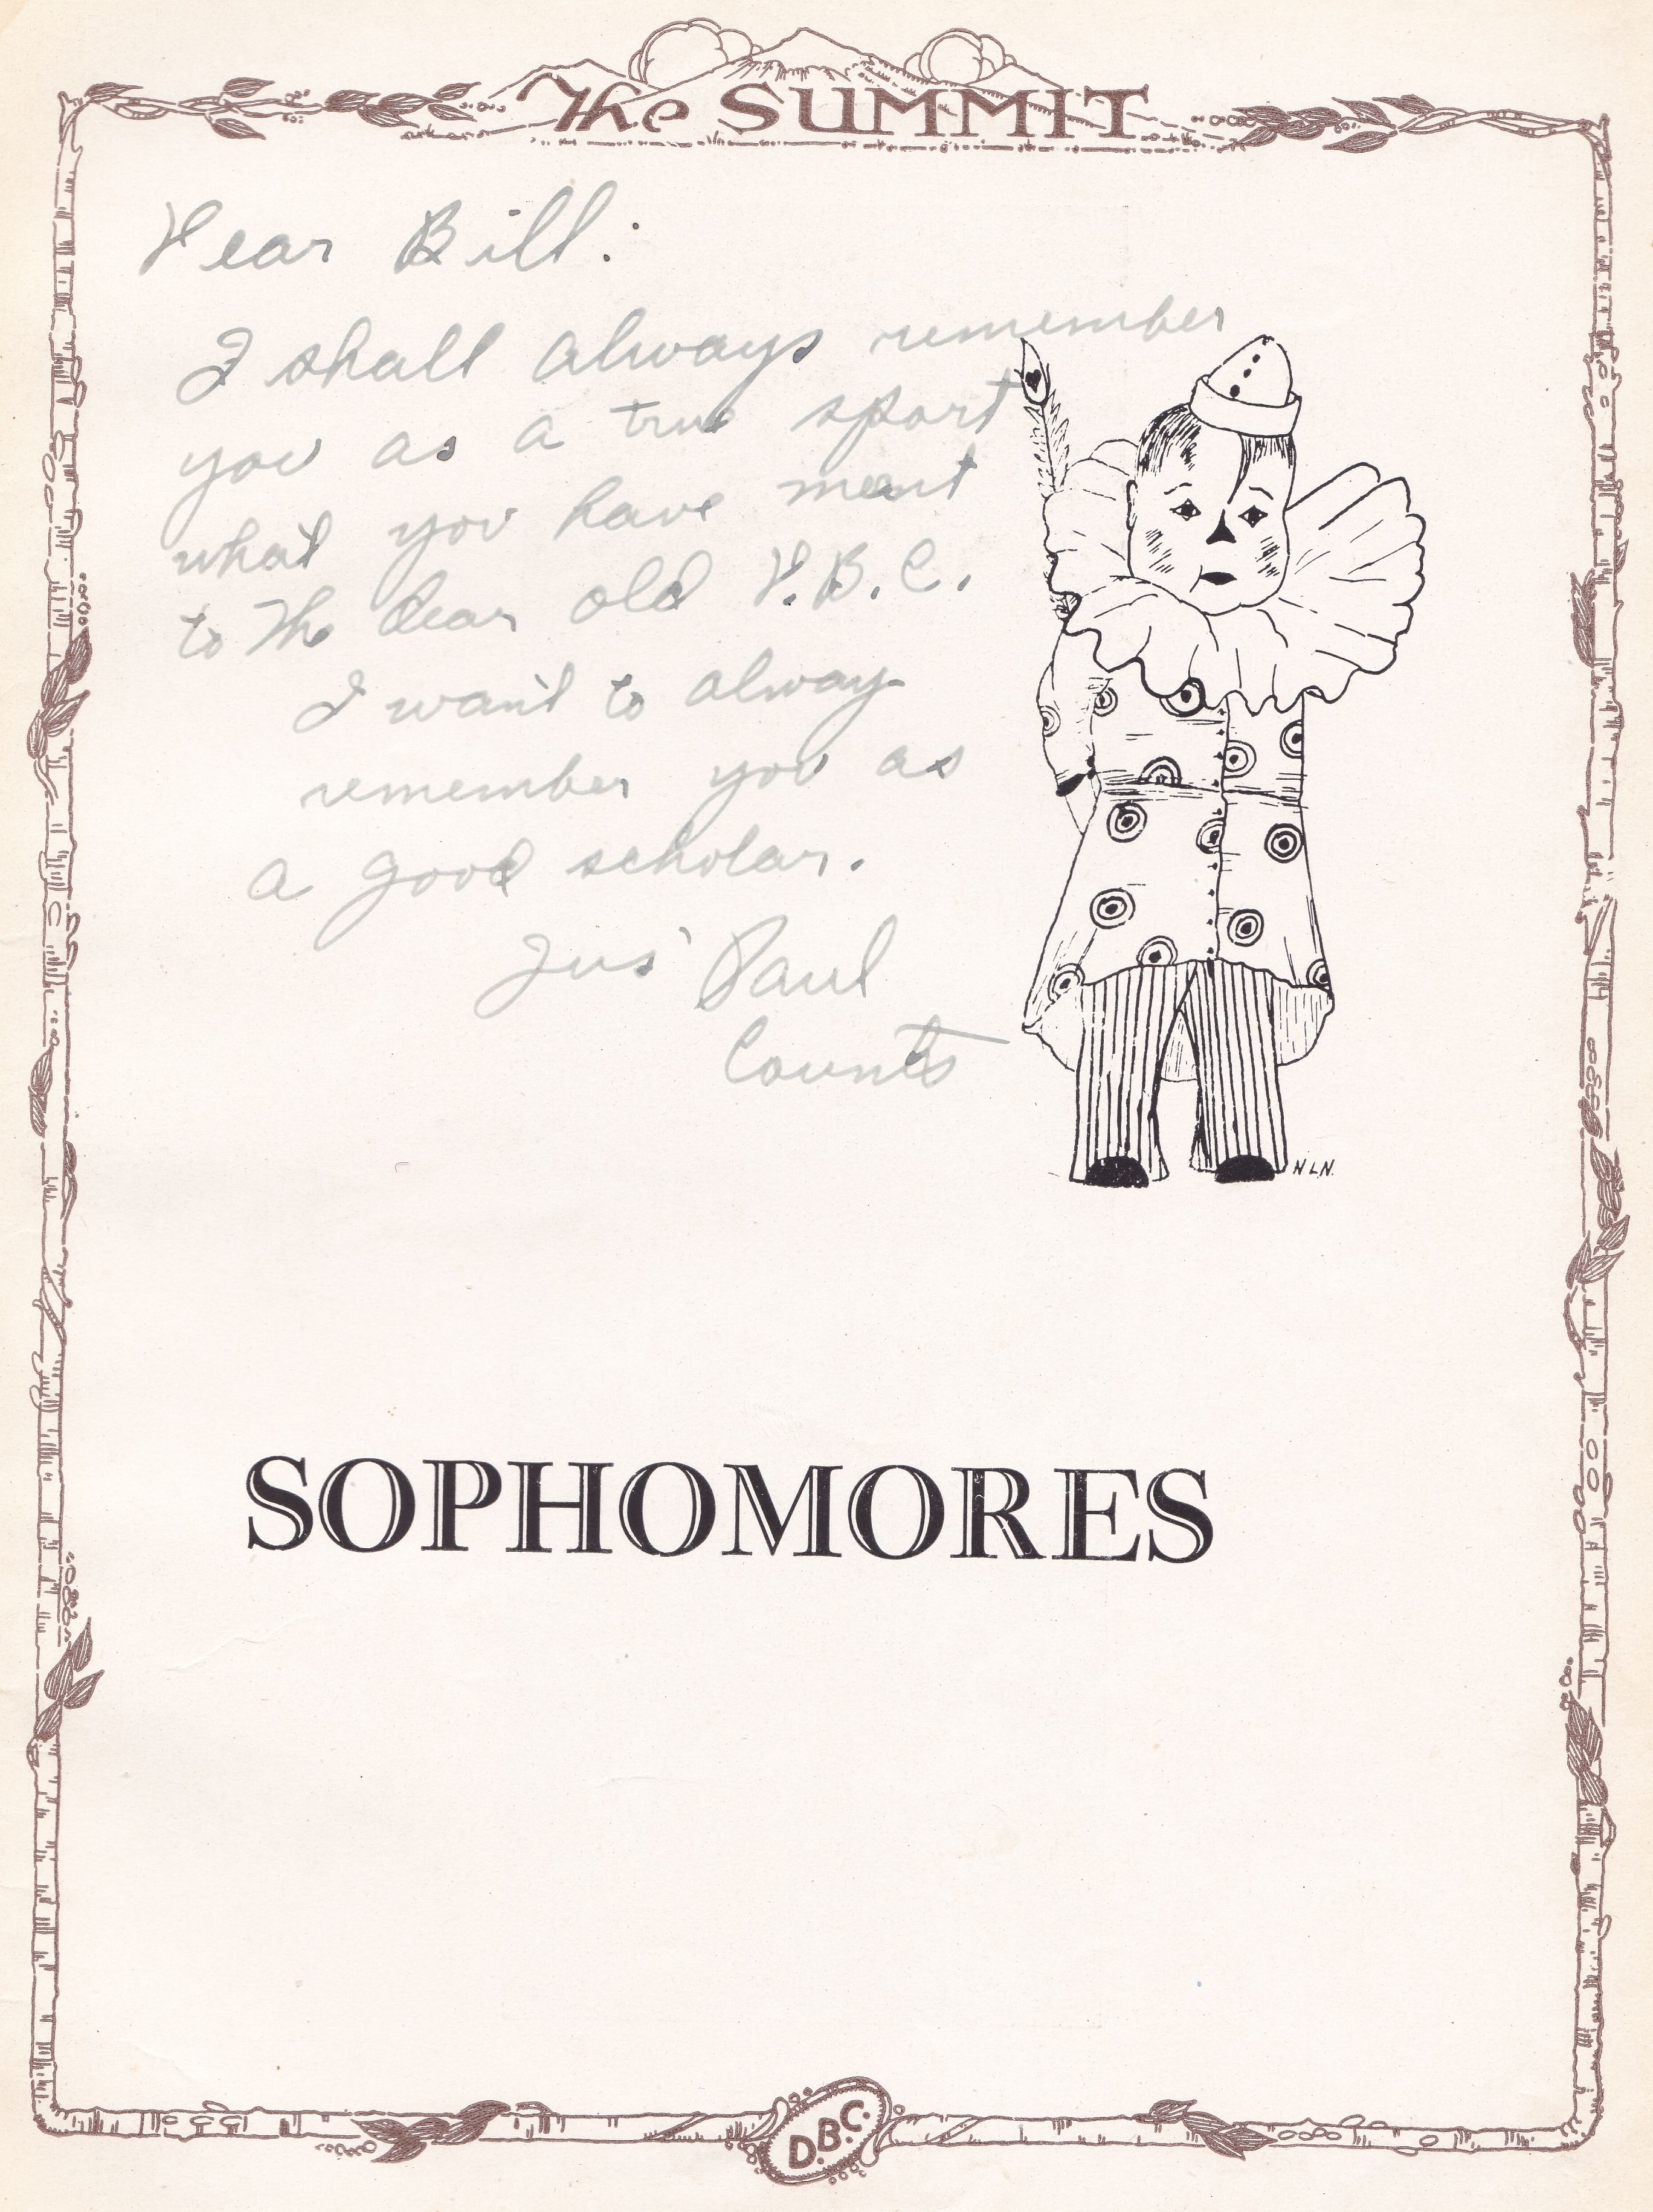 The SUMMIT
Dear Bill:
I shall always remember
you as a true sport
what you have meant
to the dear old D.B.C.
I want to always
remember you as
a good scholar.
Jus' Paul
Counts
N L N.
SOPHOMORES
D.B.C.